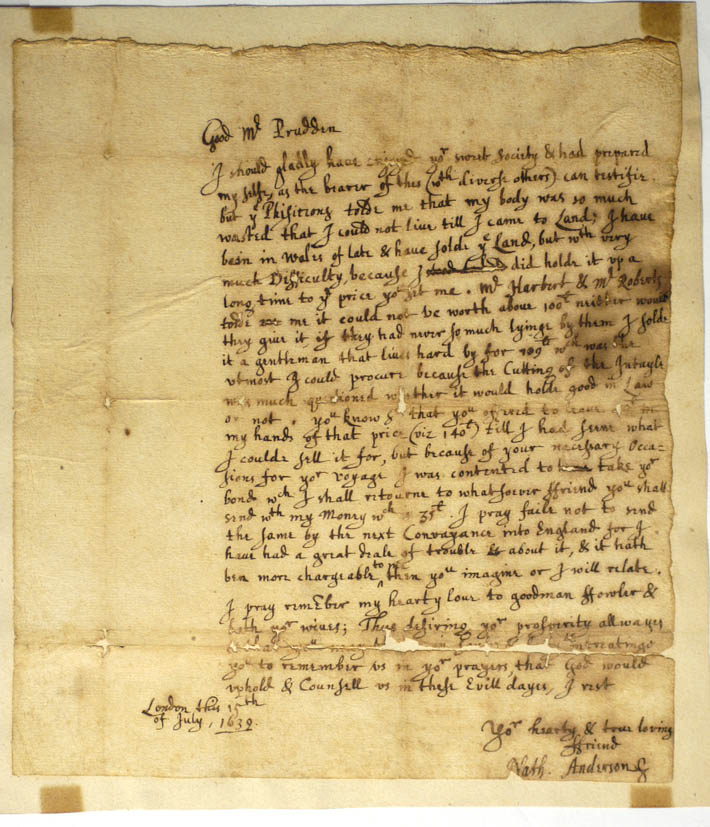 Good Mr Prudden
I should gladly have enioyed yor sweet society & had prepared
my selfe, as the bearer of this (wth diverse others) can testifie
but ye Phisitions tolde me that my body was so much
wasted that I could not live till I came to Land; I have
bein in Wales of late & have solde ye Land, but wth very
much Difficulty, because I did holde it up a
long time to ye price you set me. Mr Harbert & Mr Roberts
tolde me it could not be worth above 100l neither would
they give it if they had never so much lyinge by them I solde
it a gentleman that lives hard by for 109l wch was the
utmost I could procure because the Cutting of the Intayle
was much questioned whether it would holde good in Law
or not. you know that you offered to leave in
my hands of that price (viz 140l) till I had seene what
I coulde sell it for, but because of your necessary Occa=
sions for yor voyage I was contented to take yor
bond wch I shall retourne to whatsoever ffriend you shall
send wth my Money wch is 35l. I pray faile not to send
the same by the next Convayance into England for I
have had a great deale of trouble about it, & it hath
ben more chargeable to me then you imagine or I will relate.
I pray remEber my hearty love to goodman ffowler &
both yor wives; Thus desiring yor prosperity all wayes
intreatinge
you to remember us in yor prayers, that God would
uphold & Counsell us in these Evill dayes, I rest
London this 15th
of July, 1639.
Yor hearty & true loving
ffriend
Nath. Anderson